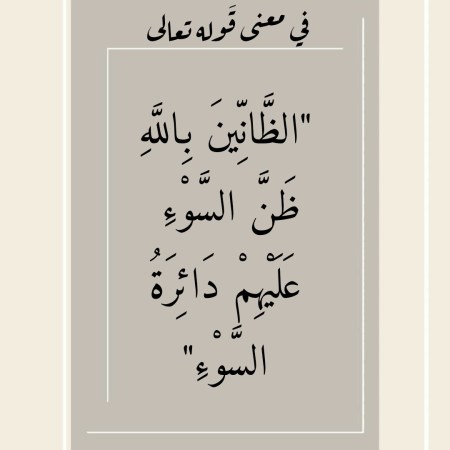 في معنى قَوله تعالى
"الظَّانِّينَ بِاللَّهِ
ظَنَّ السَّوْءِ
عَلَيْهِمْ دَائِرَةُ
السَّوْءِ"